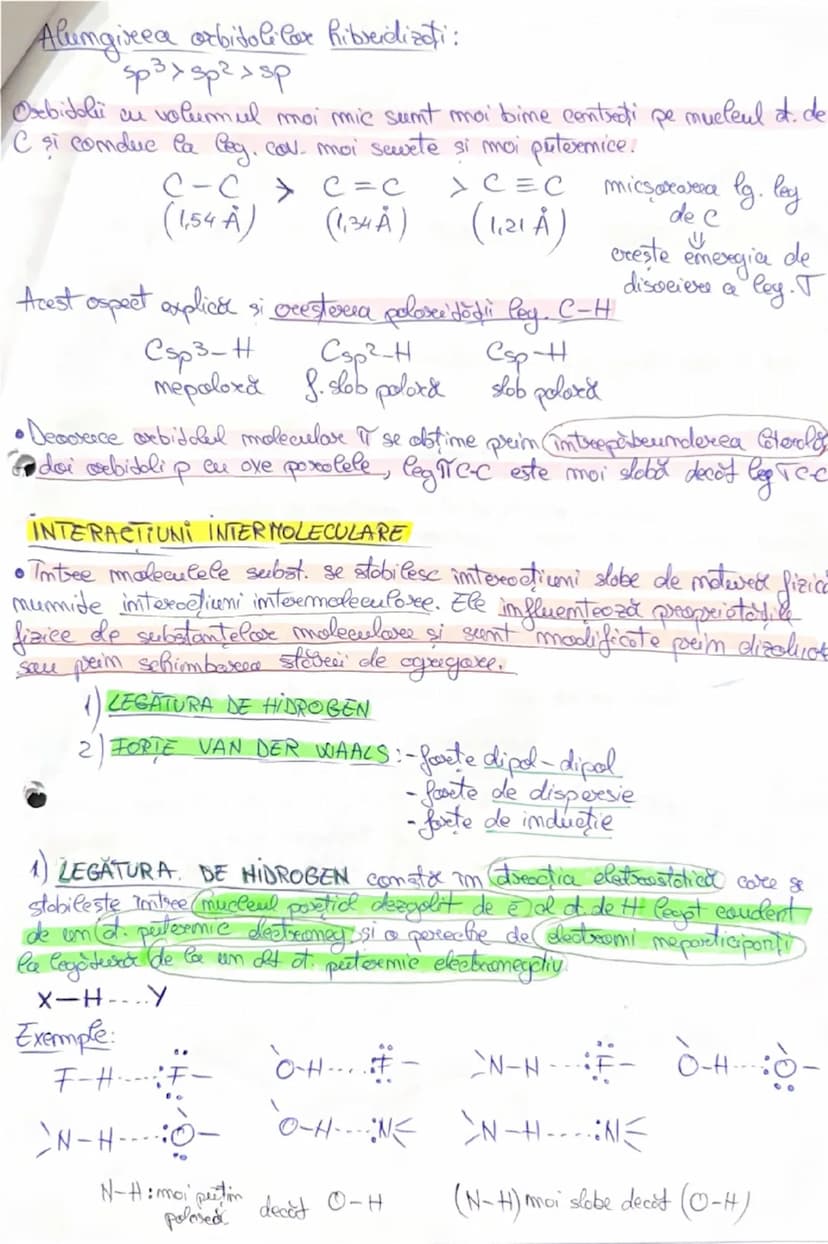 Alungirea orbitalilor hibridizați:
sp³ > sp² > sp
Orbitalii cu volumul mai mic sunt mai bine centrați pe nucleul at. de
C și conduc la leg. cov. mai scurte și mai puternice.
C – C > C = C > C ≡ C micșorarea lg. leg
(1,54 Å) (1,34 Å) (1,21 Å) de C
⇓
crește energia de
disociere a leg. σ
Acest aspect explică și creșterea polarității leg. C–H
Csp³–H Csp²–H Csp–H
nepolară f. slab polară slab polară
• Deoarece orbitalul molecular π se obține prin întrepătrunderea laterală
doi orbitali p cu axe paralele, leg π C-C este mai slabă decât leg σ C-C
INTERACȚIUNI INTERMOLECULARE
• Între moleculele subst. se stabilesc interacțiuni slabe de natură fizică
numite interacțiuni intermoleculare. Ele influențează proprietățile
fizice ale substanțelor moleculare și sunt modificate prin dizolvare
sau prin schimbarea stării de agregare.
1) LEGĂTURA DE HIDROGEN
2) FORȚE VAN DER WAALS: - forțe dipol-dipol
- forțe de dispersie
- forțe de inducție
1) LEGĂTURA DE HIDROGEN constă în atracția elctrostatică care se
stabilește între nucleul parțial dezgolit de ē al at. de H legat covalent
de un at. puternic electroneg. și o pereche de electroni neparticipanți
la legătură de la un alt at. puternic electronegativ.
X–H....Y
Exemple:
F–H....:F– O–H....:F– N–H....:F– O–H....:O–
N–H....:O– O–H....:N N–H....:N
N–H: mai puțin decât O–H (N–H) mai slabe decât (O–H)
polară